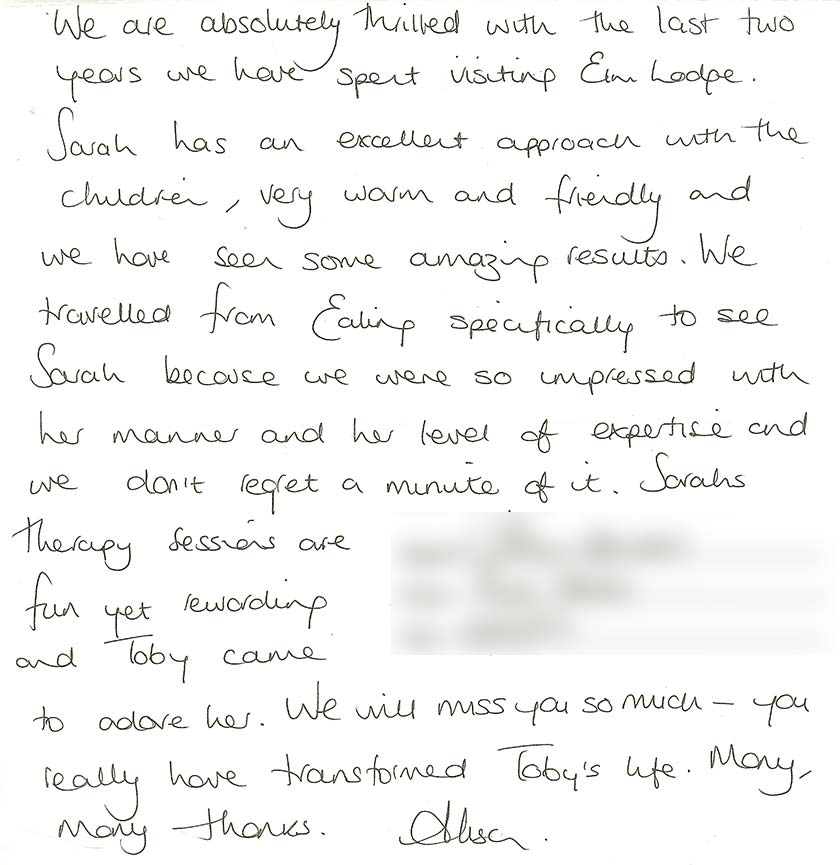 We are absolutely thrilled with the last two
years we have spent visiting Elm Lodge.
Sarah has an excellent approach with the
children, very warm and friendly and
we have seen some amazing results. We
travelled from Ealing specifically to see
Sarah because we were so impressed with
her manner and her level of expertise and
we don't regret a minute of it. Sarahs
therapy sessions are
fun yet rewarding
and Toby came
to adore her. We will miss you so much – you
really have transformed Toby's life. Many,
many thanks.